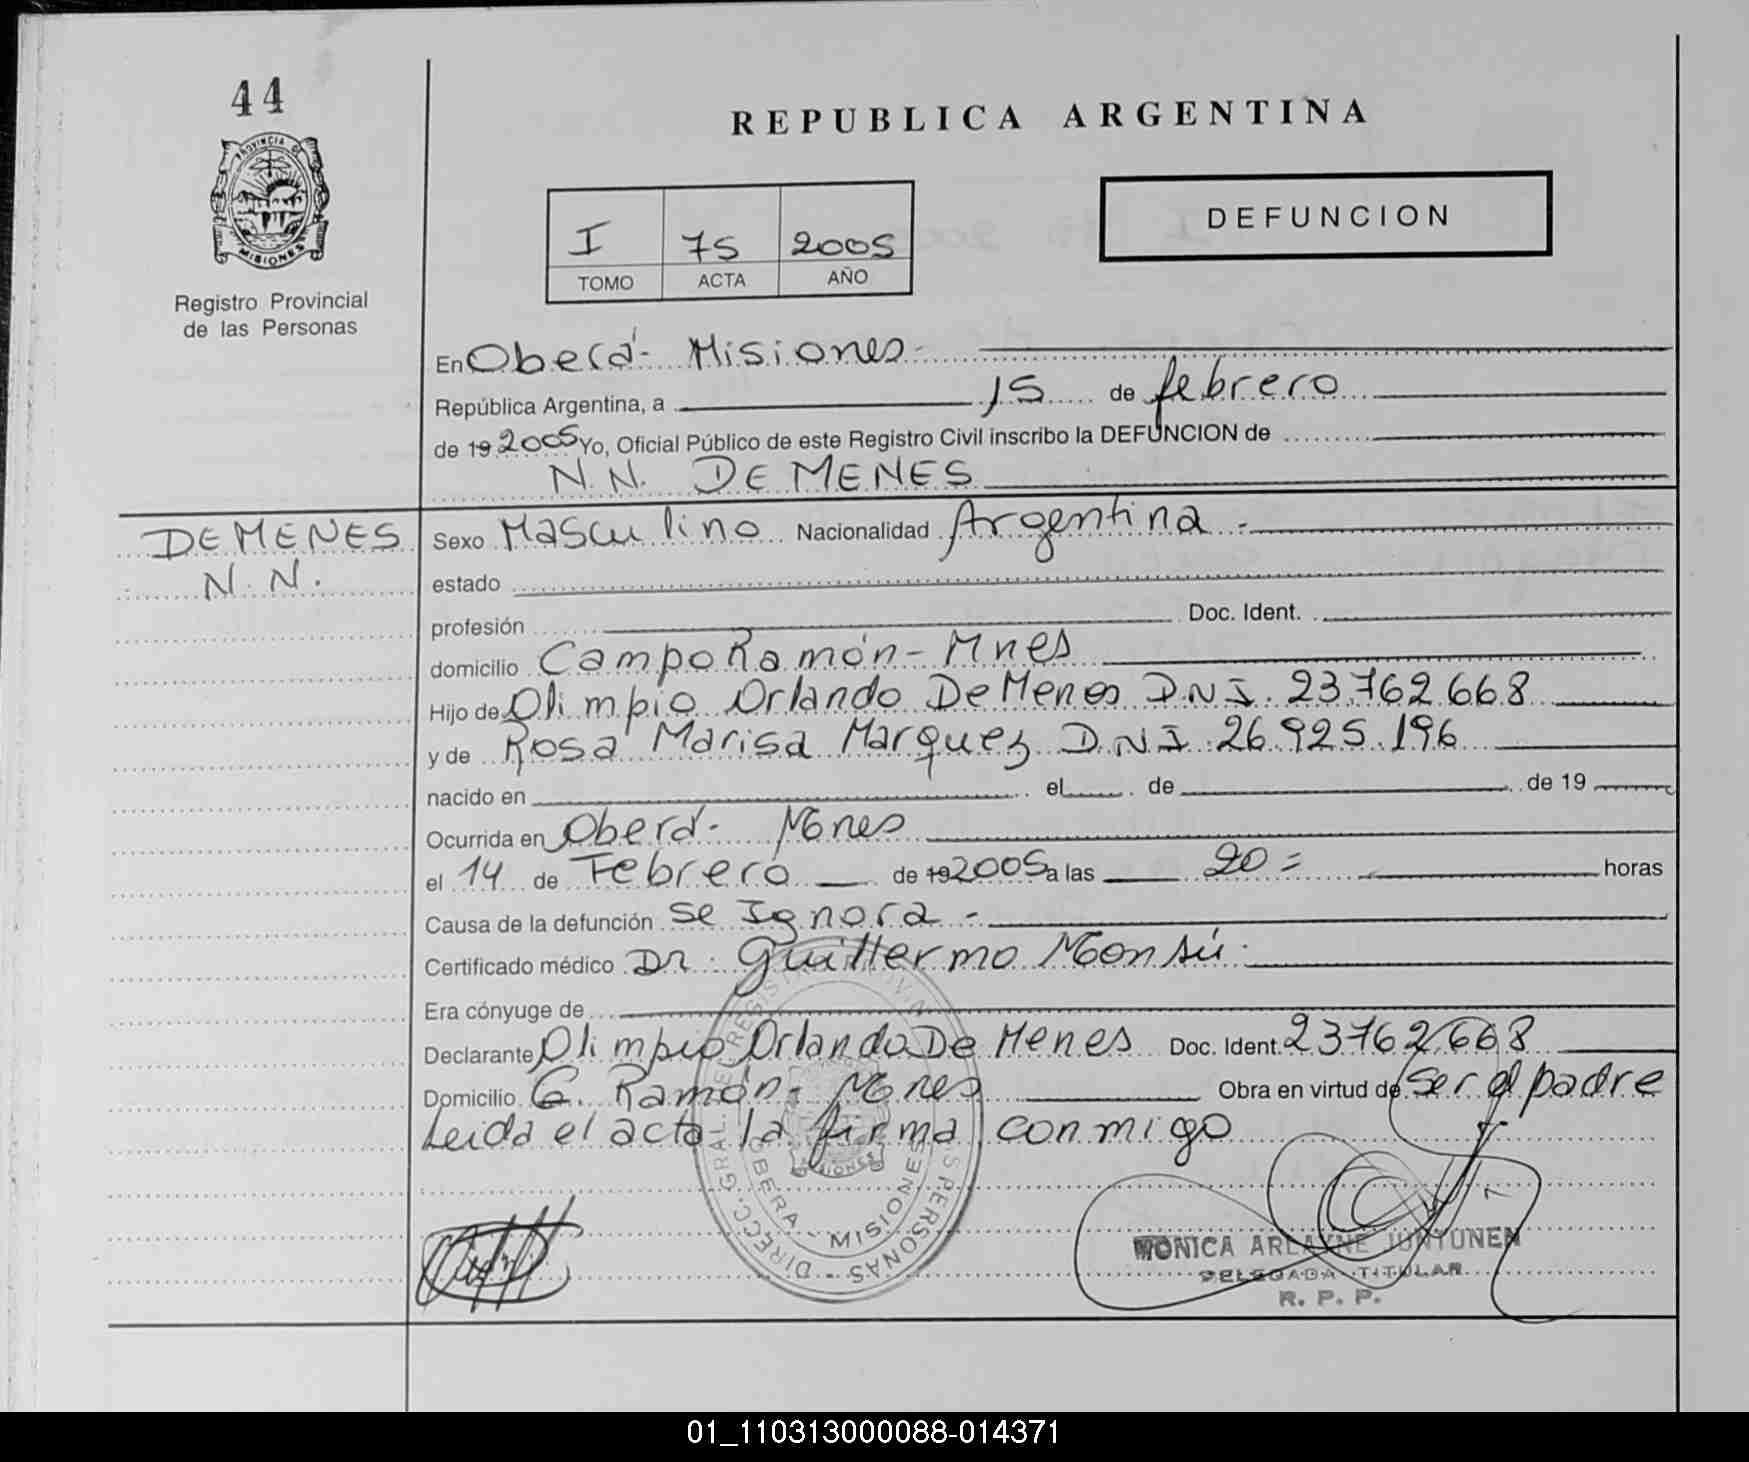 44
PROVINCIA DE
MISIONES
Registro Provincial
de las Personas
REPUBLICA ARGENTINA
I 75 2005
TOMO ACTA AÑO
DEFUNCION
En Oberá - Misiones -
República Argentina, a 15 de febrero
de 19 2005 Yo, Oficial Público de este Registro Civil inscribo la DEFUNCION de
N.N. DE MENES
DE MENES
N. N.
Sexo Masculino Nacionalidad Argentina -
estado
profesión Doc. Ident.
domicilio Campo Ramón - Mnes
Hijo de Olimpio Orlando De Menes D.N.I. 23.762.668
y de Rosa Marisa Marquez D.N.I. 26.925.196
nacido en el de de 19
Ocurrida en Oberá - Mnes
el 14 de Febrero de 19 2005 a las 20 = horas
Causa de la defunción se Ignora -
Certificado médico Dr. Guillermo Monsú.
Era cónyuge de
Declarante Olimpio Orlando De Menes Doc. Ident. 23762668
Domicilio C. Ramón - Mnes Obra en virtud de Ser el padre
Leida el acta la firma conmigo
OBERA - MISIONES
MONICA ARLAYNE JUNTUNEN
DELEGADA TITULAR
R. P. P.
01_110313000088-014371